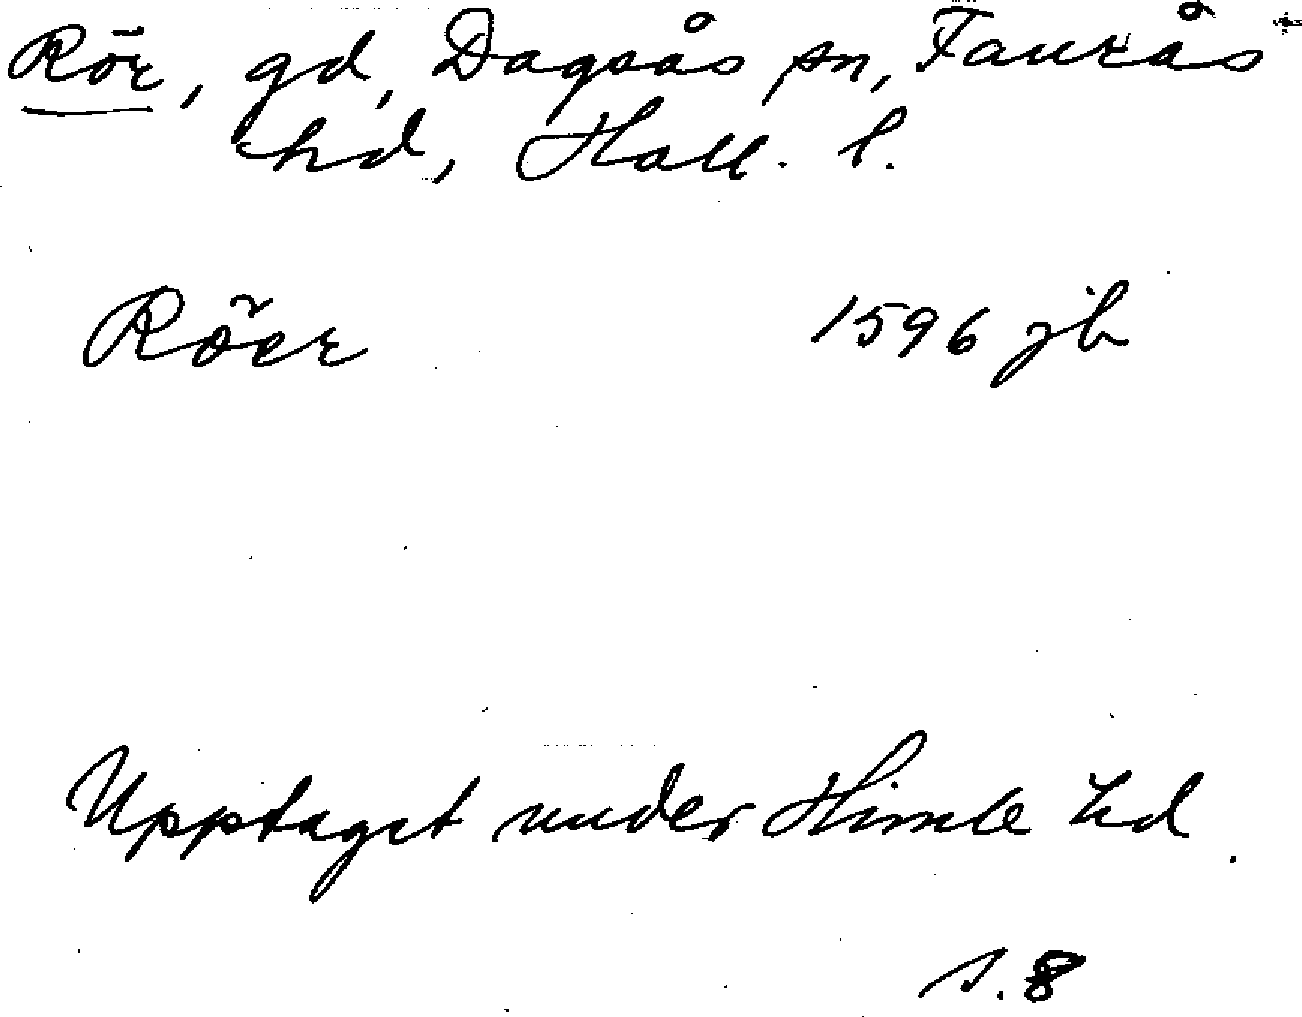 Rör, gd, Dagsås sn, Faurås
hd, Hall. l.
Röer 1596 jb
Upptaget under Himle hd.
s. 8